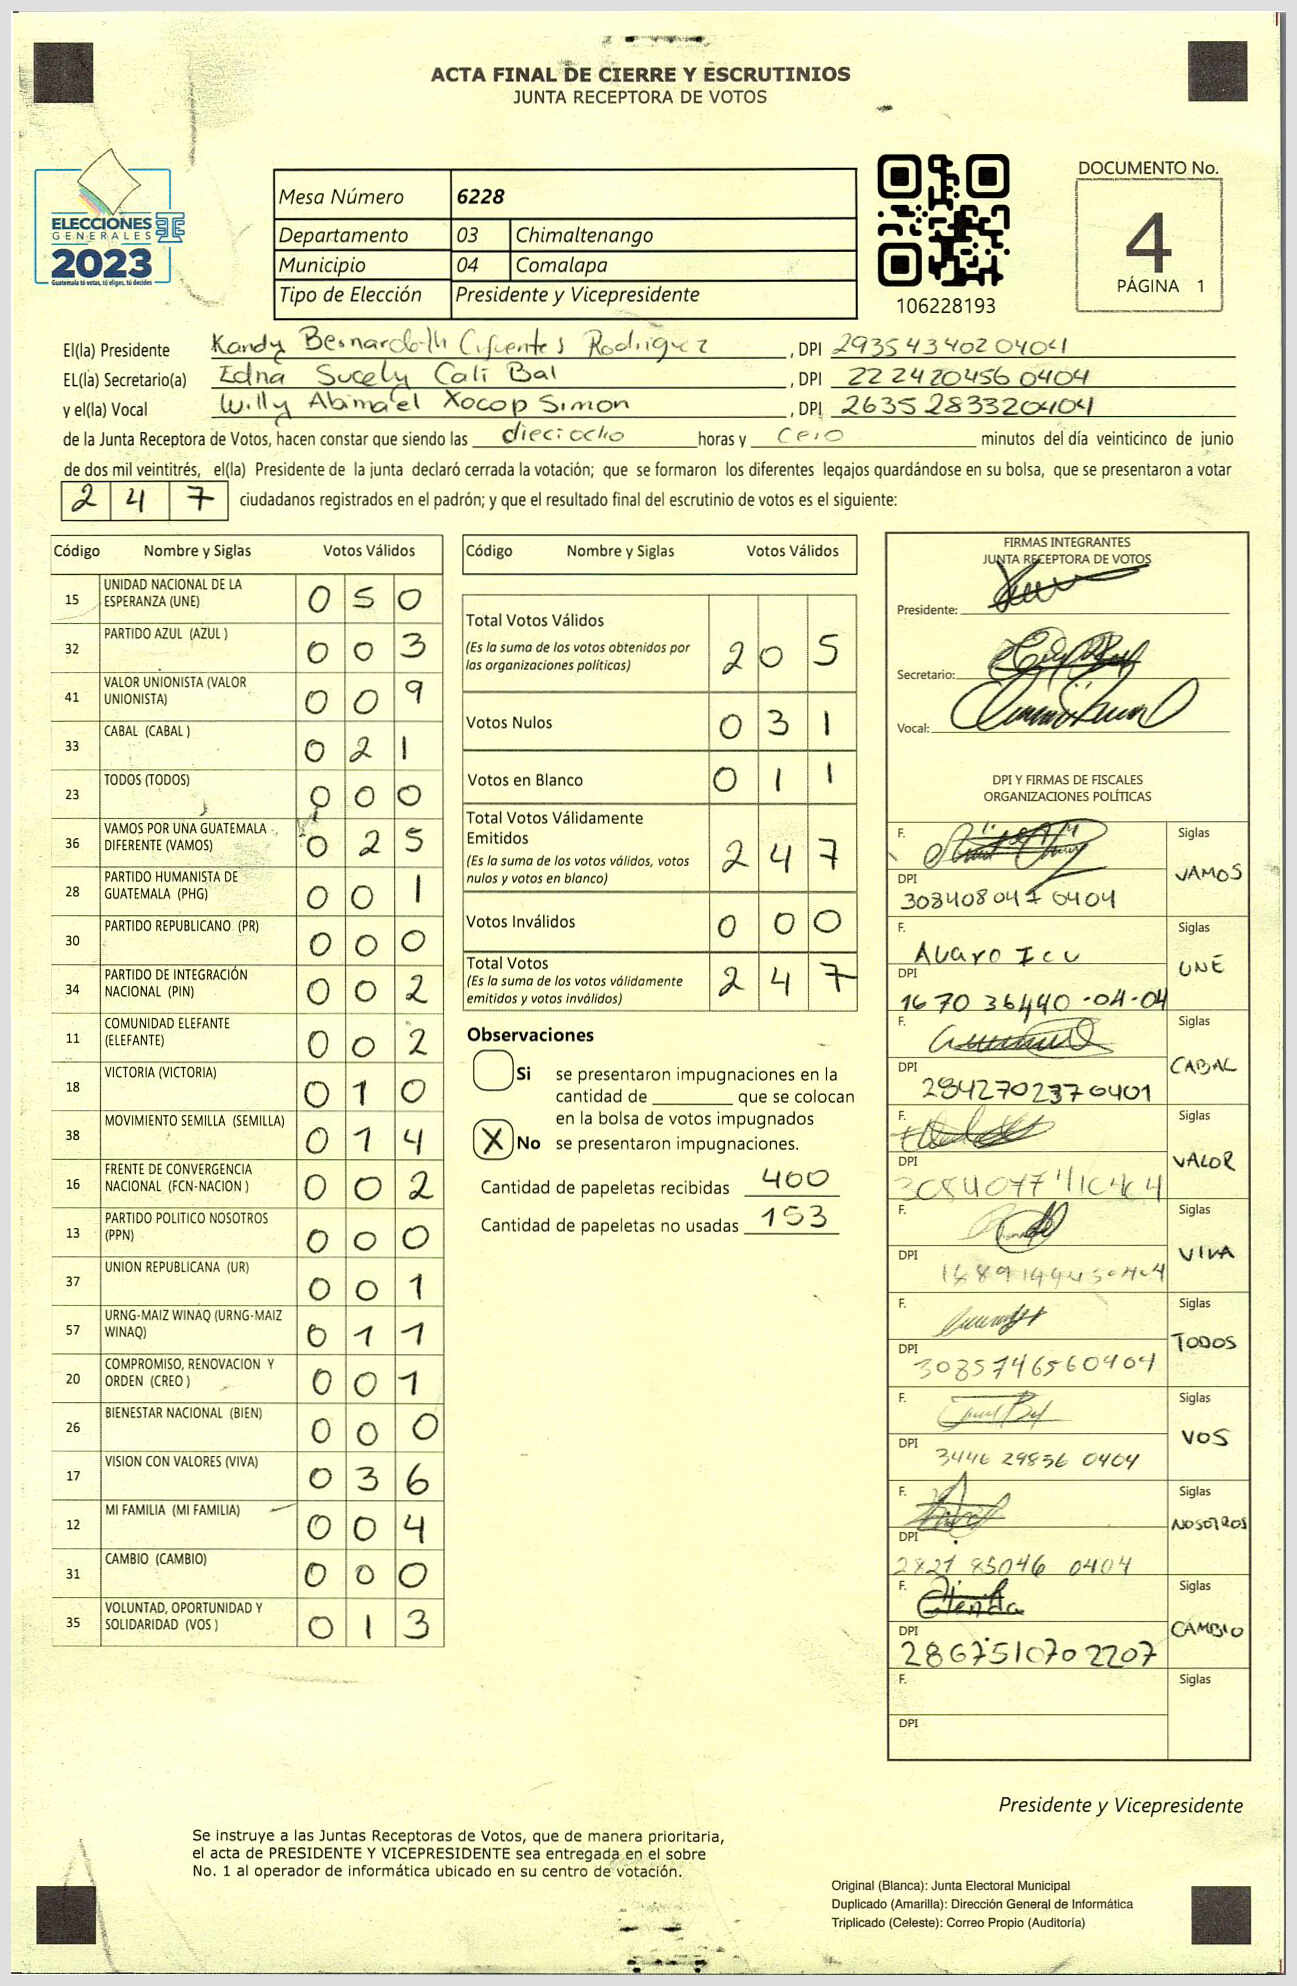 ACTA FINAL DE CIERRE Y ESCRUTINIOS
JUNTA RECEPTORA DE VOTOS
ELECCIONES
GENERALES
2023
Guatemala tú votas, tú eliges, tú decides
Mesa Número 6228
Departamento 03 Chimaltenango
Municipio 04 Comalapa
Tipo de Elección Presidente y Vicepresidente
106228193
DOCUMENTO No.
4
PÁGINA 1
El(la) Presidente Kandy Cifuentes Rodriguez , DPI 2935434020401
EL(la) Secretario(a) Edna Sucely Cali Bal , DPI 222420456 0404
y el(la) Vocal Willy Abimael Xocop Simon , DPI 2635283320404
de la Junta Receptora de Votos, hacen constar que siendo las dieciocho horas y cero minutos del día veinticinco de junio
de dos mil veintitrés, el(la) Presidente de la junta declaró cerrada la votación; que se formaron los diferentes legajos quardándose en su bolsa, que se presentaron a votar
2 4 7 ciudadanos registrados en el padrón; y que el resultado final del escrutinio de votos es el siguiente:
Código Nombre y Siglas Votos Válidos
15 UNIDAD NACIONAL DE LA ESPERANZA (UNE) 0 5 0
32 PARTIDO AZUL (AZUL ) 0 0 3
41 VALOR UNIONISTA (VALOR UNIONISTA) 0 0 9
33 CABAL (CABAL ) 0 2 1
23 TODOS (TODOS) 0 0 0
36 VAMOS POR UNA GUATEMALA DIFERENTE (VAMOS) 0 2 5
28 PARTIDO HUMANISTA DE GUATEMALA (PHG) 0 0 1
30 PARTIDO REPUBLICANO (PR) 0 0 0
34 PARTIDO DE INTEGRACIÓN NACIONAL (PIN) 0 0 2
11 COMUNIDAD ELEFANTE (ELEFANTE) 0 0 2
18 VICTORIA (VICTORIA) 0 1 0
38 MOVIMIENTO SEMILLA (SEMILLA) 0 1 4
16 FRENTE DE CONVERGENCIA NACIONAL (FCN-NACION ) 0 0 2
13 PARTIDO POLITICO NOSOTROS (PPN) 0 0 0
37 UNION REPUBLICANA (UR) 0 0 1
57 URNG-MAIZ WINAQ (URNG-MAIZ WINAQ) 0 1 1
20 COMPROMISO, RENOVACION Y ORDEN (CREO ) 0 0 1
26 BIENESTAR NACIONAL (BIEN) 0 0 0
17 VISION CON VALORES (VIVA) 0 3 6
12 MI FAMILIA (MI FAMILIA) 0 0 4
31 CAMBIO (CAMBIO) 0 0 0
35 VOLUNTAD, OPORTUNIDAD Y SOLIDARIDAD (VOS ) 0 1 3
Código Nombre y Siglas Votos Válidos
Total Votos Válidos 2 0 5
(Es la suma de los votos obtenidos por
las organizaciones políticas)
Votos Nulos 0 3 1
Votos en Blanco 0 1 1
Total Votos Válidamente
Emitidos 2 4 7
(Es la suma de los votos válidos, votos
nulos y votos en blanco)
Votos Inválidos 0 0 0
Total Votos 2 4 7
(Es la suma de los votos válidamente
emitidos y votos inválidos)
Observaciones
Si se presentaron impugnaciones en la
cantidad de ________ que se colocan
en la bolsa de votos impugnados
X No se presentaron impugnaciones.
Cantidad de papeletas recibidas 400
Cantidad de papeletas no usadas 153
FIRMAS INTEGRANTES
JUNTA RECEPTORA DE VOTOS
Presidente:
Secretario:
Vocal:
DPI Y FIRMAS DE FISCALES
ORGANIZACIONES POLÍTICAS
F. Siglas
VAMOS
DPI
308408047 0404
F. Alvaro Icu Siglas
UNE
DPI
1670 36440 -04-04
F. Siglas
CABAL
DPI
2842702370401
F. Siglas
VALOR
DPI
F. Siglas
VIVA
DPI
F. Siglas
TODOS
DPI
3085746560404
F. Siglas
VOS
DPI
3446 29856 0404
F. Siglas
NOSOTROS
DPI
2827 85046 0404
F. Siglas
CAMBIO
DPI
2867510702207
F. Siglas
DPI
Presidente y Vicepresidente
Se instruye a las Juntas Receptoras de Votos, que de manera prioritaria,
el acta de PRESIDENTE Y VICEPRESIDENTE sea entregada en el sobre
No. 1 al operador de informática ubicado en su centro de votación.
Original (Blanca): Junta Electoral Municipal
Duplicado (Amarilla): Dirección General de Informática
Triplicado (Celeste): Correo Propio (Auditoría)